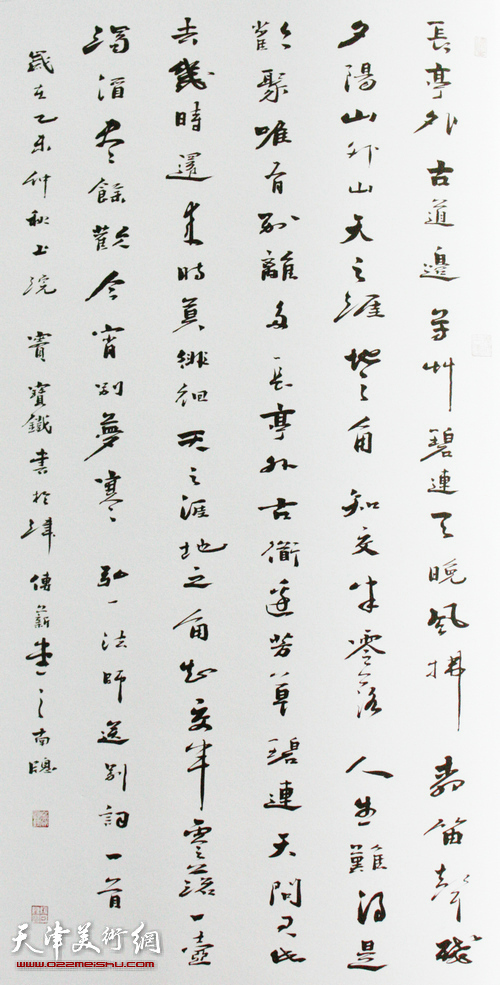 長亭外古道邊芳艸碧連天晚風拂柳笛聲殘
夕陽山外山天之涯地之角知交半零落人生難得是
歡聚唯有別離多長亭外古道邊芳草碧連天問君此
去幾時還來時莫徘徊天之涯地之角知交半零落一壺
濁酒盡餘歡今宵別夢寒弘一法師送別詞一首
歲在乙未仲秋上浣竇寶鐵書於津傳薪書之南牕
天津美術網
www.022meishu.com